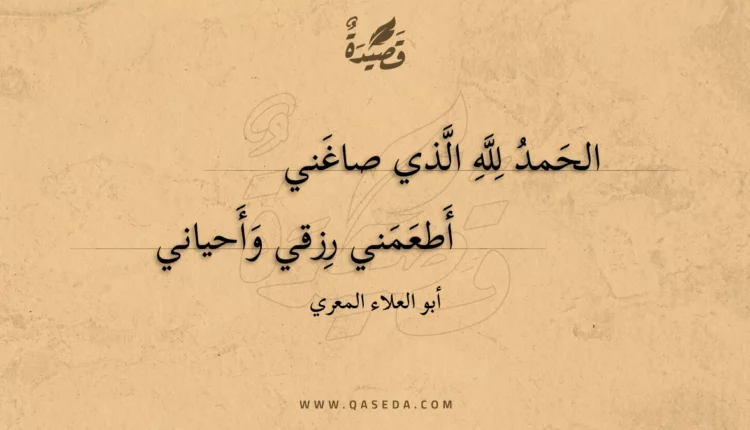 قَصِيدَةٌ
الحَمدُ لِلَّهِ الَّذي صاغَني
أَطعَمَني رِزقي وَأَحياني
أبو العلاء المعري
WWW.QASEDA.COM